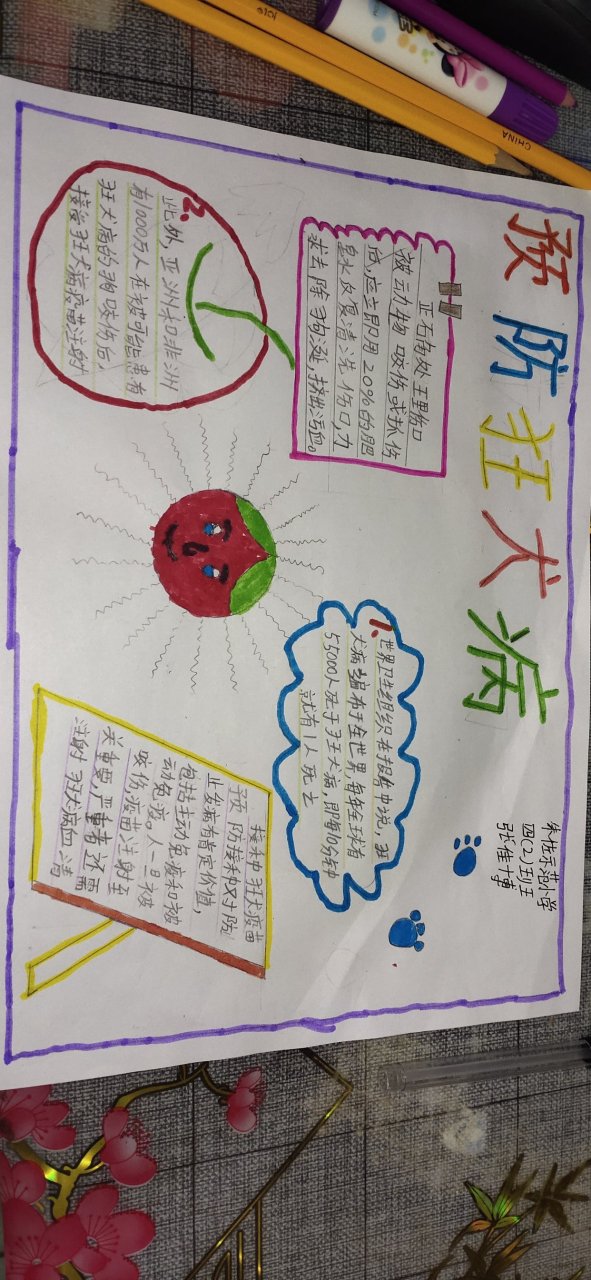 预防狂犬病
朱桥示范小学
四(2)班王
张佳博
正石有处王里伤口
被动物咬伤或抓伤
后,应立即用20%的肥
皂水反复清洗伤口,力
求去除狗涎,挤出污血。
2.
此外,亚洲和非洲
有1000万人在被可能患有
狂犬病的狗咬伤后,
接受狂犬病疫苗注射
1.
世界卫生组织在报告中说,狂
犬病遍布于全世界,每年全球有
55000人死于狂犬病,即每10分钟
就有1人死亡
接种狂犬疫苗
预防接种对防
止发病有肯定价值,
包括主动免疫和被
动免疫。人一旦被
咬伤疫苗注射至
关重要,严重者还需
注射狂犬病血清
CHINA